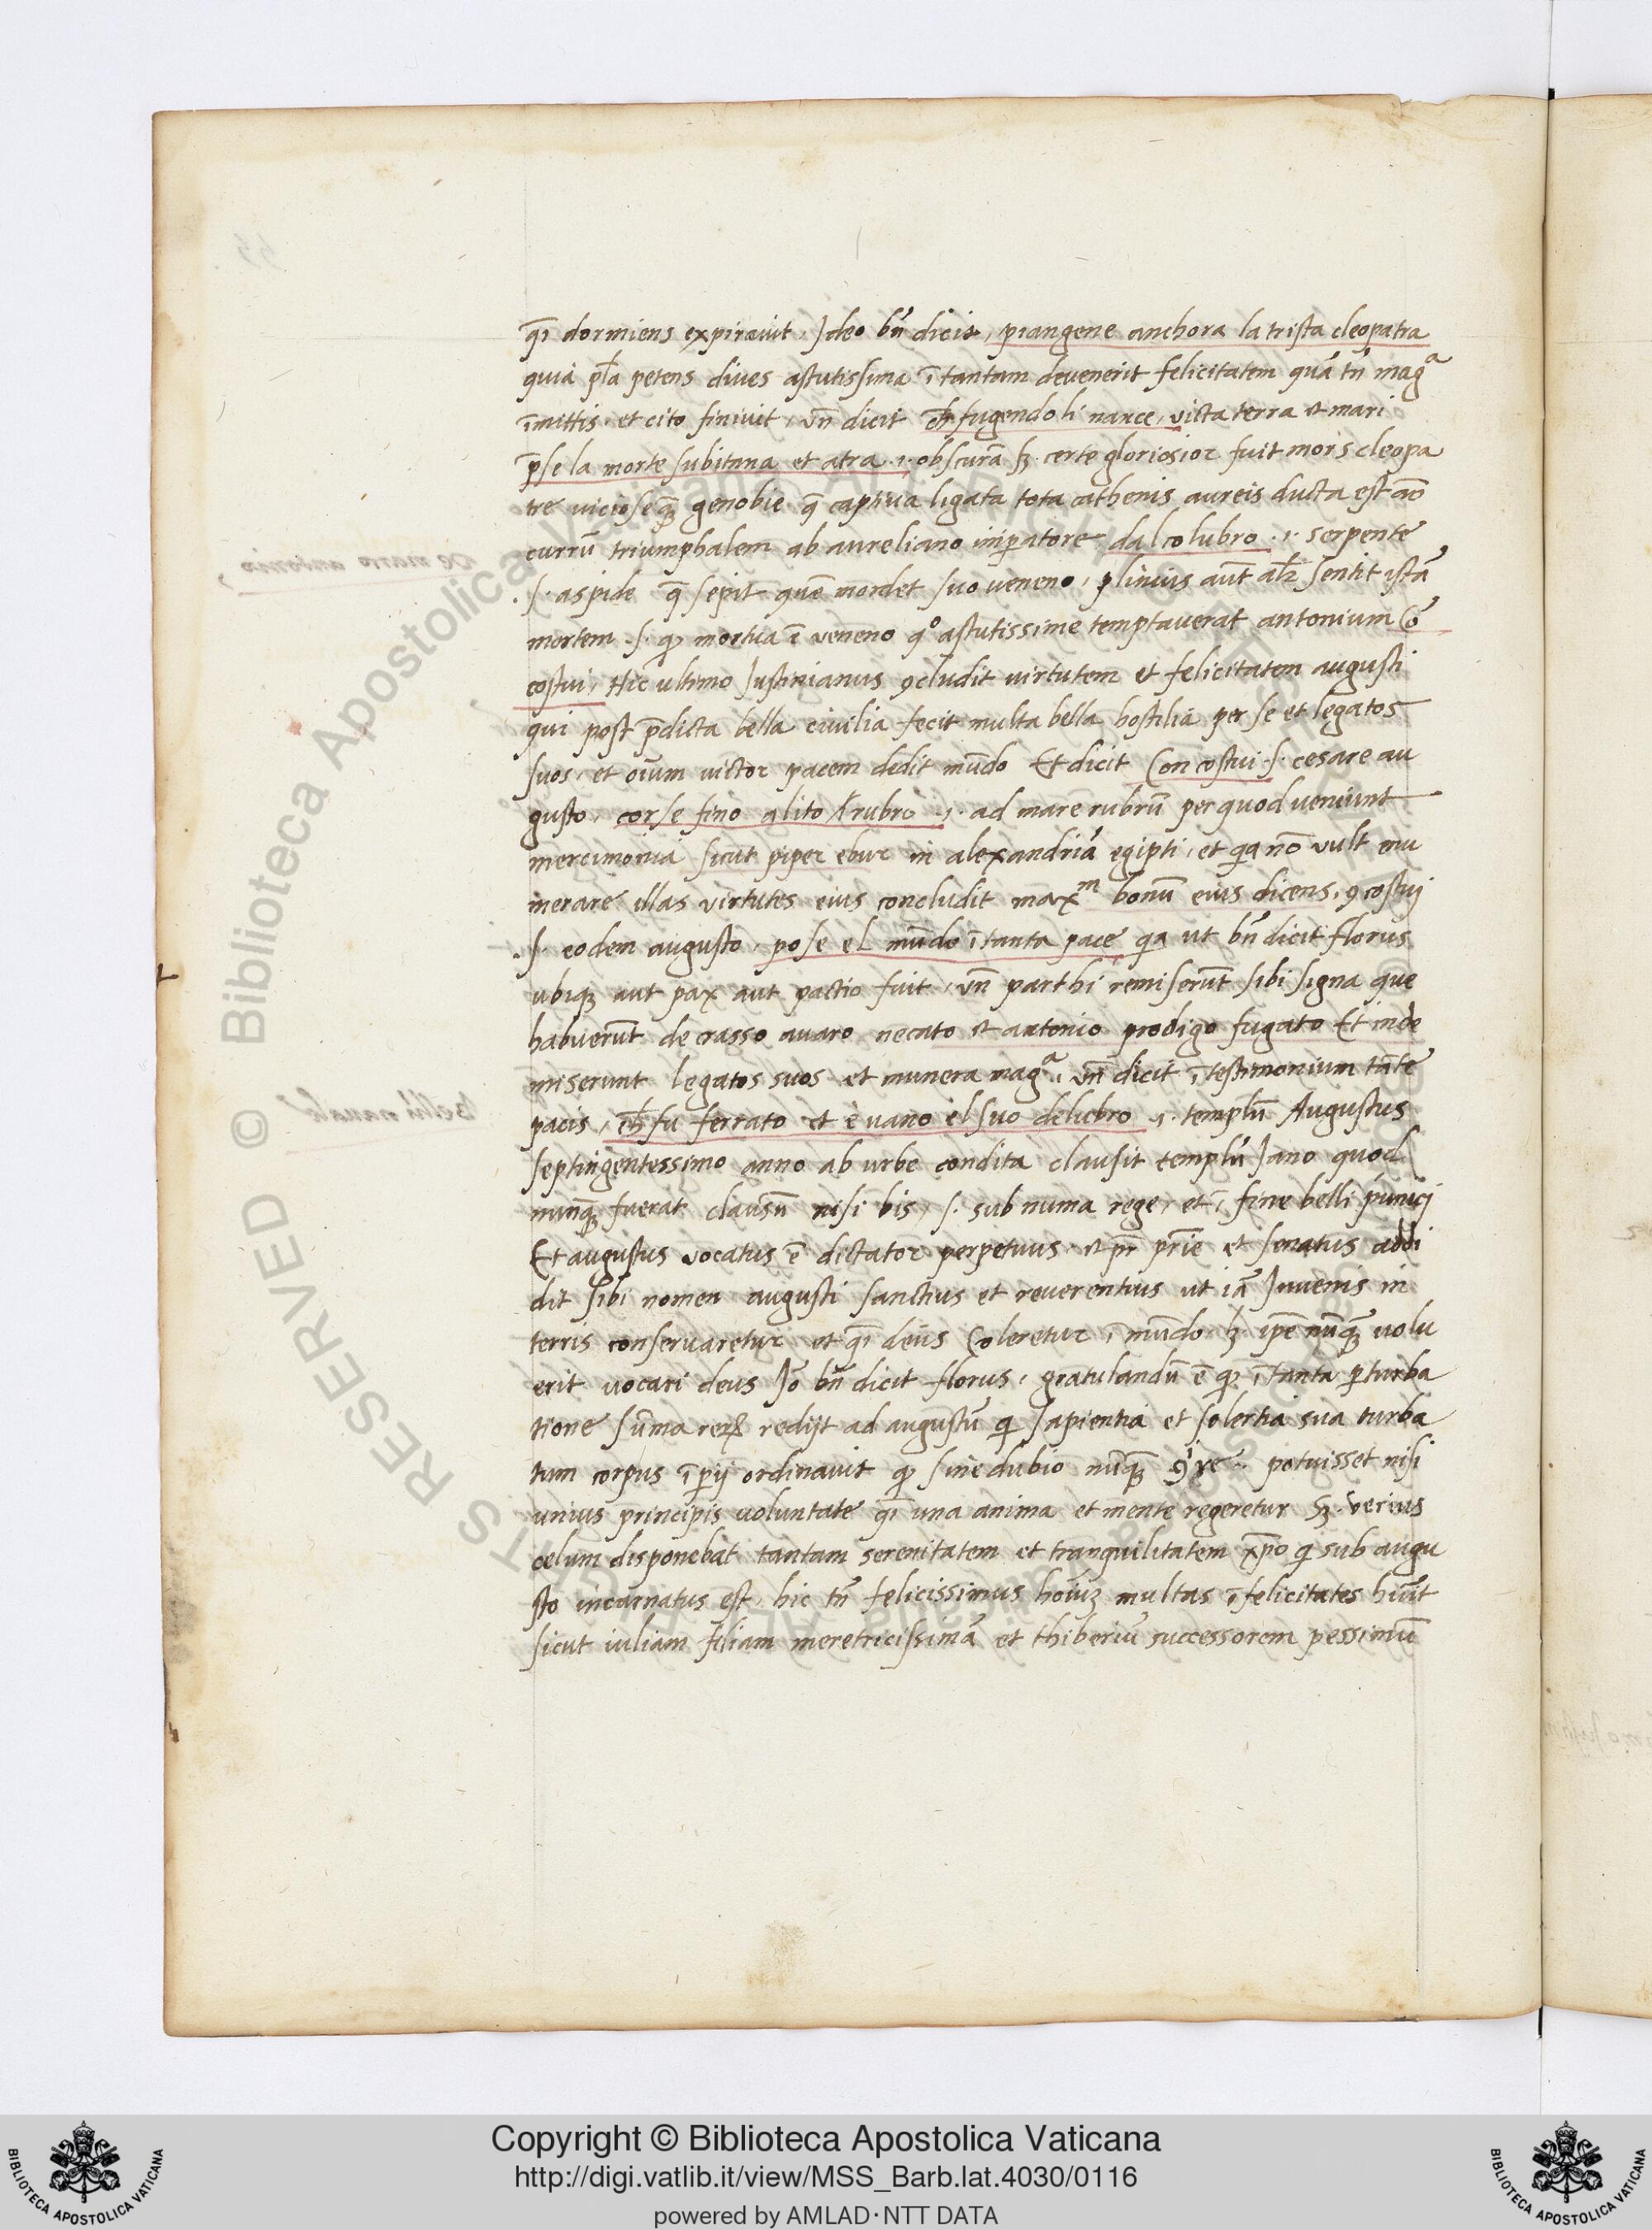 qͣi dormiens expiravit, Ideo bn̄ dicit, piangene anchora la trista cleopatra
quia pl̄a petens dives astutissima ī tantam devenerit felicitatem quā tn̄ magᵃ
īmittis et cito finivit, vn̄ dicit ch̄ fugendoli nance, victa terra et mari
p̄se la morte subitana et atra .i. obscurā sꝫ certe gloriosior fuit mors cleopa
tre viciose qꝫ genobie q̄ captiva ligata tota cathenis aureis ducta est añ
currū triumphalem ab aureliano imꝑatore dal colubro .i. serpente
.s. aspide q̄ sepit quē mordet suo veneno, plinius aut̄ alr̄ sentit istā
mortem .s. ꝙ mortua ē veneno qᵒ astutissime temptaverat antonium Cō
costui, Hic ultimo Justinianus ꝯcludit virtutem et felicitatem augusti
qui post p̄dicta bella civilia fecit multa bella hostilia per se et legatos
suos, et oīum victor pacem dedit mūdo Et dicit Con costui .s. cesare au
gusto, corse fino alito rubro .i. ad mare rubrū per quod veniunt
mercimonia sicut piper ebur in alexandriā egipti, et qa nō vult enu
merare illas virtutes eius concludit maxᵐ bonū eius dicens, ꝯ costuj
.s. eodem augusto, pose el mūdo ī tanta pace qa ut bn̄ dicit florus
ubiqꝫ aut pax aut pactio fuit, vn̄ parthi remiserūt sibi signa que
habuerūt de crasso avaro necato et antonio prodigo fugato Et inde
miserunt legatos suos et munera magᵃ, vn̄ dicit ī testimonium tāte
pacis, ch̄ fu ferrato et è vano el suo delubro .i. templū Augustus
septingentessimo anno ab urbe condita clausit templū Jano quod
nunqꝫ fuerat clausū nisi bis, s. sub numa rege, et ī fine belli punicj
Et augustus vocatus ē dictator perpetuus et pr̄ pr̄ie et senatus addi
dit sibi nomen augusti sanctius et reverentius ut iā Juvenis in
terris conservaretur et qͣi deus Coleretur ī mūdo lꝫ ipē nūqꝫ volu
erit vocari deus Jō bn̄ dicit florus, gratulandū ē ꝙ ī tanta ꝑturba
tione sūma reꝝ redijt ad augustū q sapientia et solertia sua turba
tum corpus īꝑij ordinavit ꝙ sine dubio nūqꝫ potuisset nisi
unius principis voluntate qͣi una anima et mente regeretur Sꝫ verius
celum disponebat tantam serenitatem et tranquilitatem xp̄o q sub augu
sto incarnatus est, hic tn̄ felicissimus hoīuꝫ multas īfelicitates hūit
sicut iuliam filiam meretricissimā et thiberiū successorem pessimū
Copyright © Biblioteca Apostolica Vaticana
http://digi.vatlib.it/view/MSS_Barb.lat.4030/0116
powered by AMLAD·NTT DATA
BIBLIOTECA APOSTOLICA VATICANA
BIBLIOTECA APOSTOLICA VATICANA